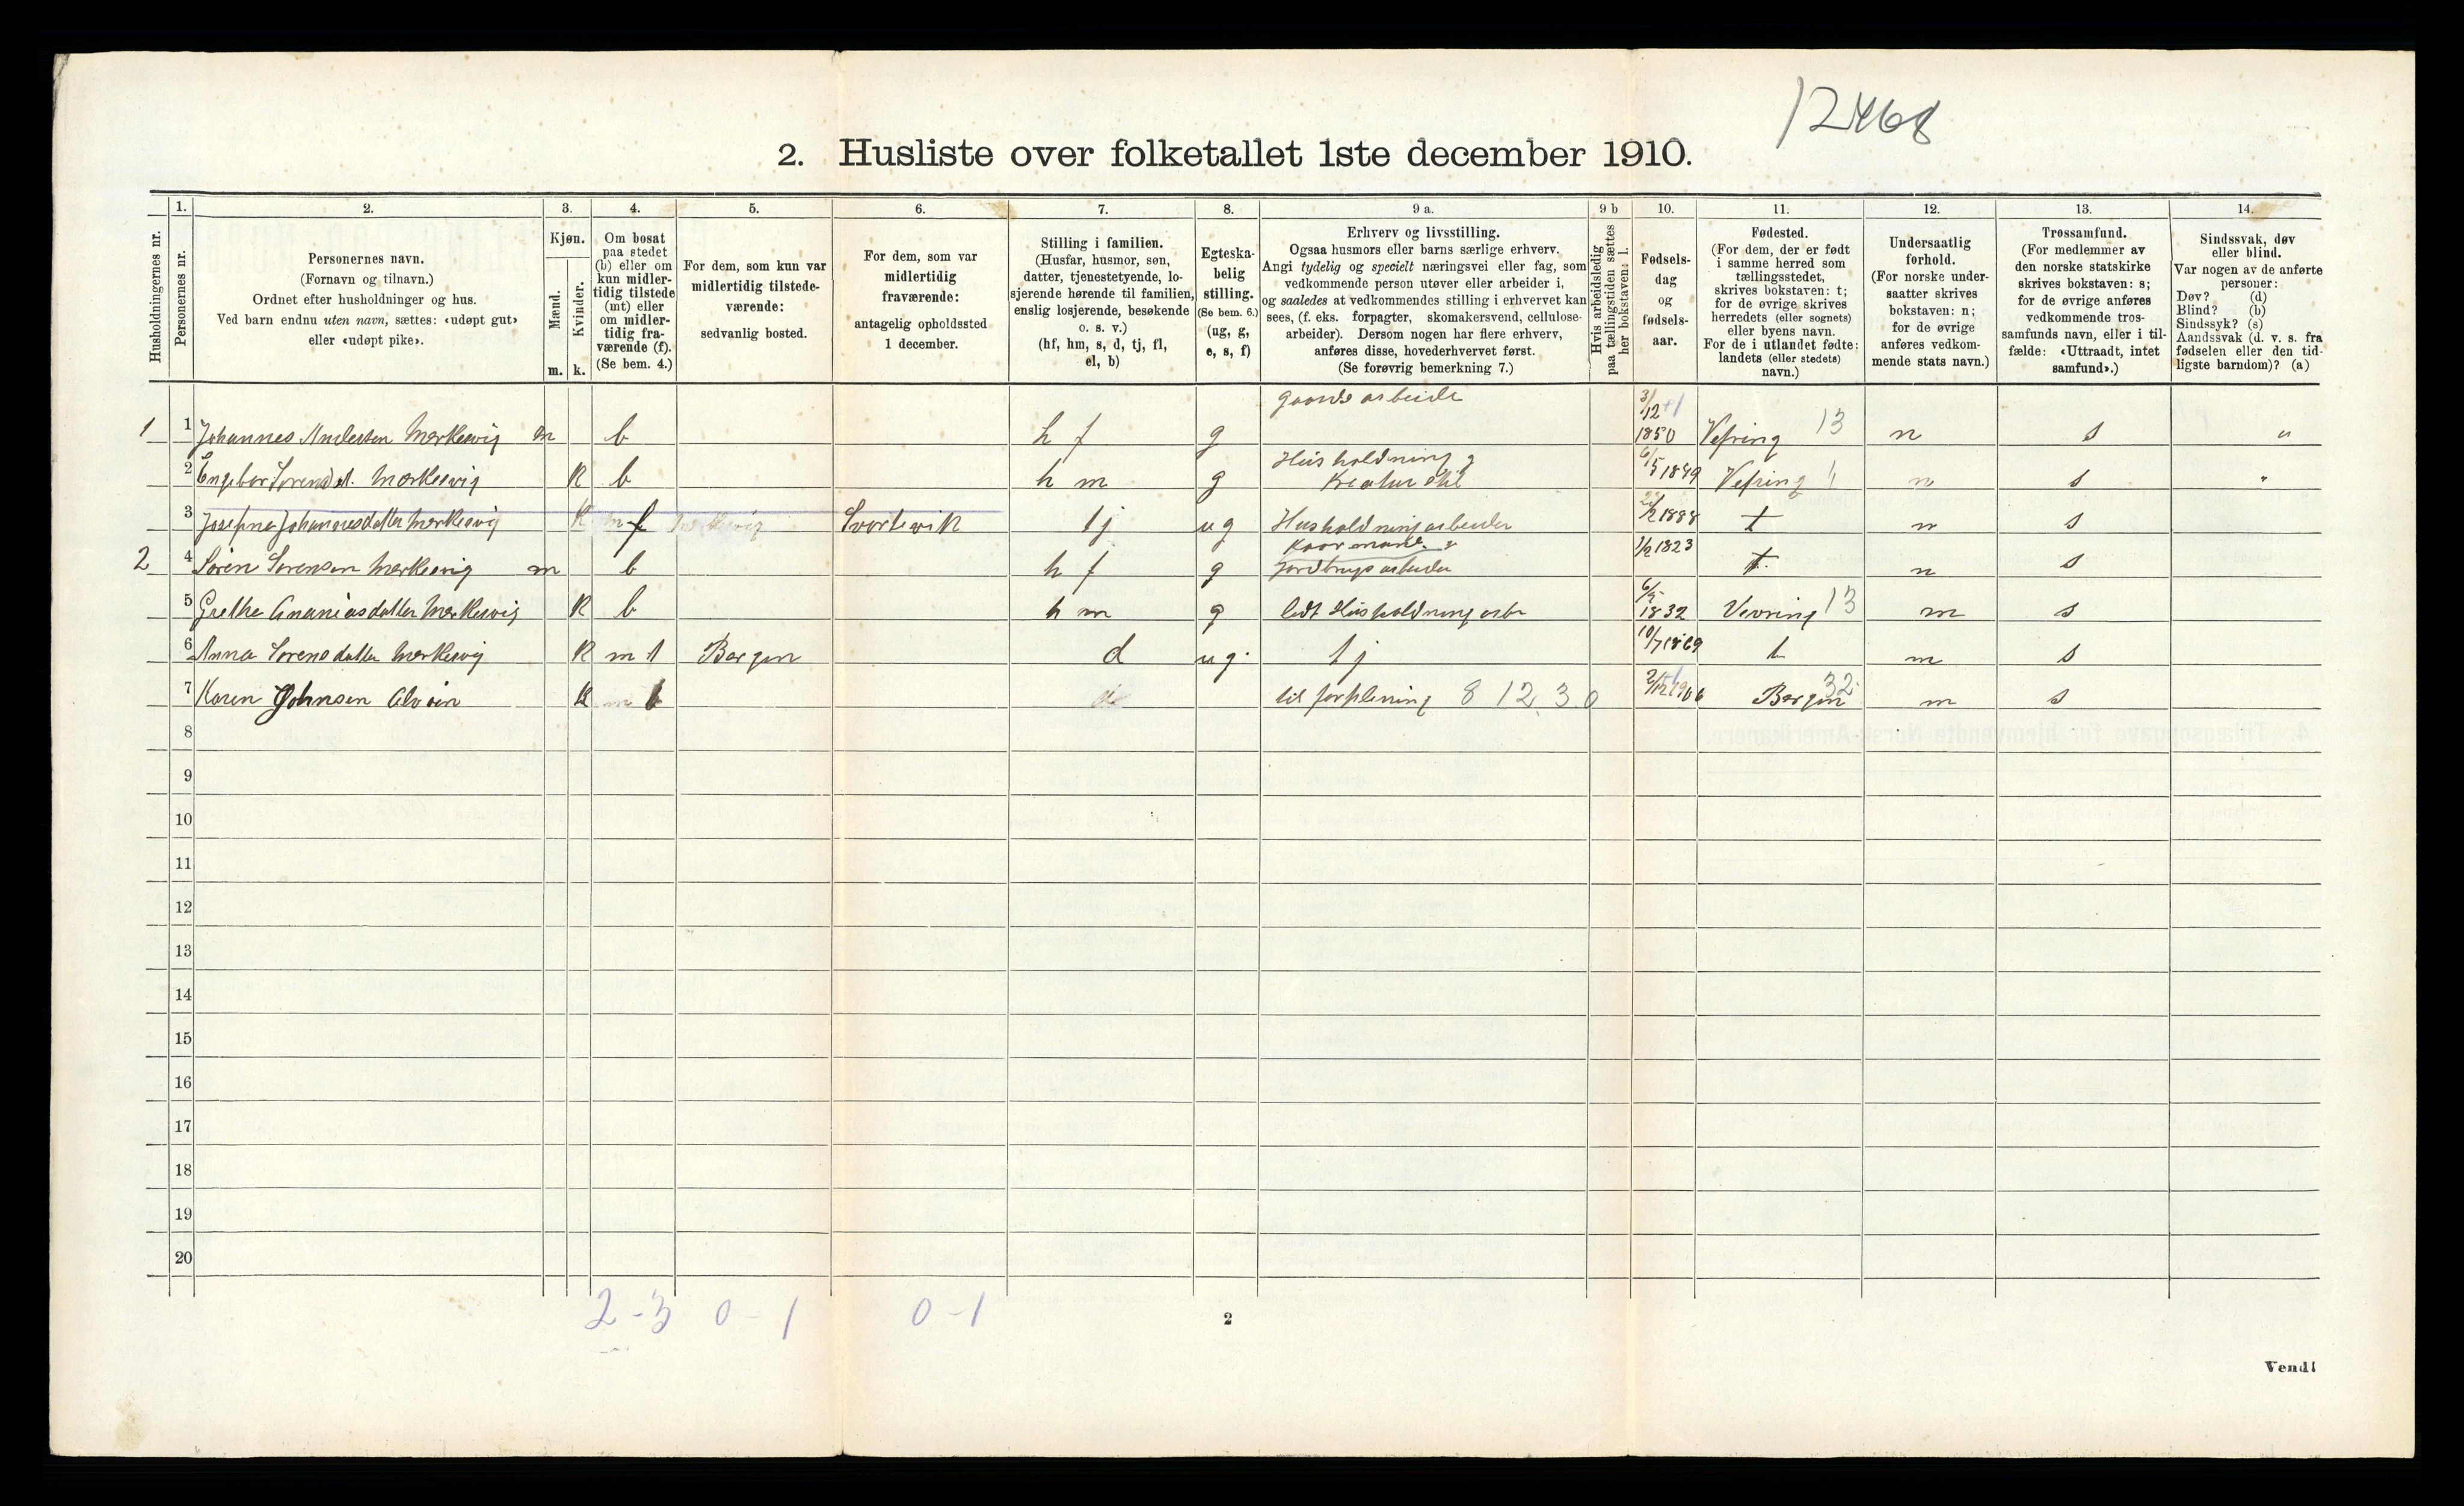 12468
2. Husliste over folketallet 1ste december 1910.
Husholdningernes nr.
1.
Personernes nr.
2.
Personernes navn.
(Fornavn og tilnavn.)
Ordnet efter husholdninger og hus.
Ved barn endnu uten navn, sættes: «udøpt gut»
eller «udøpt pike».
3.
Kjøn.
Mænd.
Kvinder.
m. k.
4.
Om bosat
paa stedet
(b) eller om
kun midler-
tidig tilstede
(mt) eller
om midler-
tidig fra-
værende (f).
(Se bem. 4.)
5.
For dem, som kun var
midlertidig tilstede-
værende:
sedvanlig bosted.
6.
For dem, som var
midlertidig
fraværende:
antagelig opholdssted
1 december.
7.
Stilling i familien.
(Husfar, husmor, søn,
datter, tjenestetyende, lo-
sjerende hørende til familien,
enslig losjerende, besøkende
o. s. v.)
(hf, hm, s, d, tj, fl,
el, b)
8.
Egteska-
belig
stilling.
(Se bem. 6.)
(ug, g,
e, s, f)
9 a.
Erhverv og livsstilling.
Ogsaa husmors eller barns særlige erhverv.
Angi tydelig og specielt næringsvei eller fag, som
vedkommende person utøver eller arbeider i,
og saaledes at vedkommendes stilling i erhvervet kan
sees, (f. eks. forpagter, skomakersvend, cellulose-
arbeider). Dersom nogen har flere erhverv,
anføres disse, hovederhvervet først.
(Se forøvrig bemerkning 7.)
9 b
Hvis arbeidsledig
paa tællingstiden sættes
her bokstaven: l.
10.
Fødsels-
dag
og
fødsels-
aar.
11.
Fødested.
(For dem, der er født
i samme herred som
tællingsstedet,
skrives bokstaven: t;
for de øvrige skrives
herredets (eller sognets)
eller byens navn.
For de i utlandet fødte:
landets (eller stedets)
navn.)
12.
Undersaatlig
forhold.
(For norske under-
saatter skrives
bokstaven: n;
for de øvrige
anføres vedkom-
mende stats navn.)
13.
Trossamfund.
(For medlemmer av
den norske statskirke
skrives bokstaven: s;
for de øvrige anføres
vedkommende tros-
samfunds navn, eller i til-
fælde: «Uttraadt, intet
samfund».)
14.
Sindssvak, døv
eller blind.
Var nogen av de anførte
personer:
Døv? (d)
Blind? (b)
Sindssyk? (s)
Aandssvak (d. v. s. fra
fødselen eller den tid-
ligste barndom)? (a)
1 1 Johannes Andersen Merkesvig m b h f g gaards arbeide 3/12 1850 Vefring 13 n s "
2 Engebor Sorensd. Merkesvig K b h m g Husholdning & Kreatur stil 6/5 1849 Vefring " n s "
3 Josefna Johannesdatter Merkesvig K f Svortevik tj ug Husholdningarbeider 1888 t n s
2 4 Sören Sorensen Merkesvig m b h f g Kaarmand & Jordbrugs arbeider 1/2 1823 t. n s
5 Grethe Ananiasdatter Merkesvig K b h m g lidt Husholdning arbe 6/5 1832 Vevring 13 n s
6 Anna Sorensdatter Merkesvig K m t Bergen d ug. tj 10/7 1869 t n s
7 Karen Johnsen Alvøen K b til forplening 8 12.30 2/12 1906 Bergen 32 n s
8
9
10
11
12
13
14
15
16
17
18
19
20
2 - 3 0 - 1 0 - 1
2
Vend!